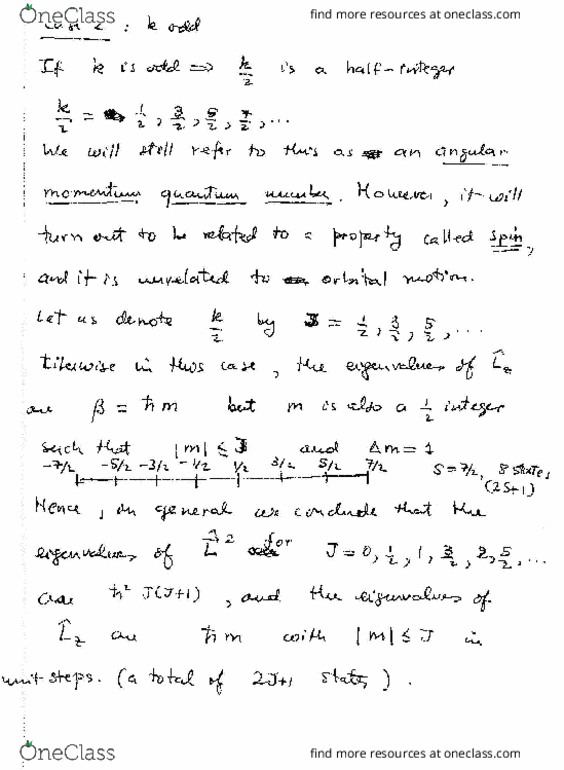 OneClass find more resources at oneclass.com
Case 2 : k odd
If k is odd ⟹ k/2 is a half-integer
k/2 = 1/2, 3/2, 5/2, 7/2, ...
We will still refer to this as an angular
momentum quantum number. However, it will
turn out to be related to a property called spin,
and it is unrelated to orbital motion.
Let us denote k/2 by J = 1/2, 3/2, 5/2, ...
Likewise in this case, the eigenvalues of L̂z
are β = ħm but m is also a 1/2 integer
such that |m| ≤ J and Δm = 1
-7/2 -5/2 -3/2 -1/2 1/2 3/2 5/2 7/2 S = 7/2, 8 states
(2S+1)
Hence, in general we conclude that the
eigenvalues of L̂² for J = 0, 1/2, 1, 3/2, 2, 5/2, ...
are ħ² J(J+1), and the eigenvalues of
L̂z are ħm with |m| ≤ J in
unit steps. (a total of 2J+1 states).
OneClass find more resources at oneclass.com